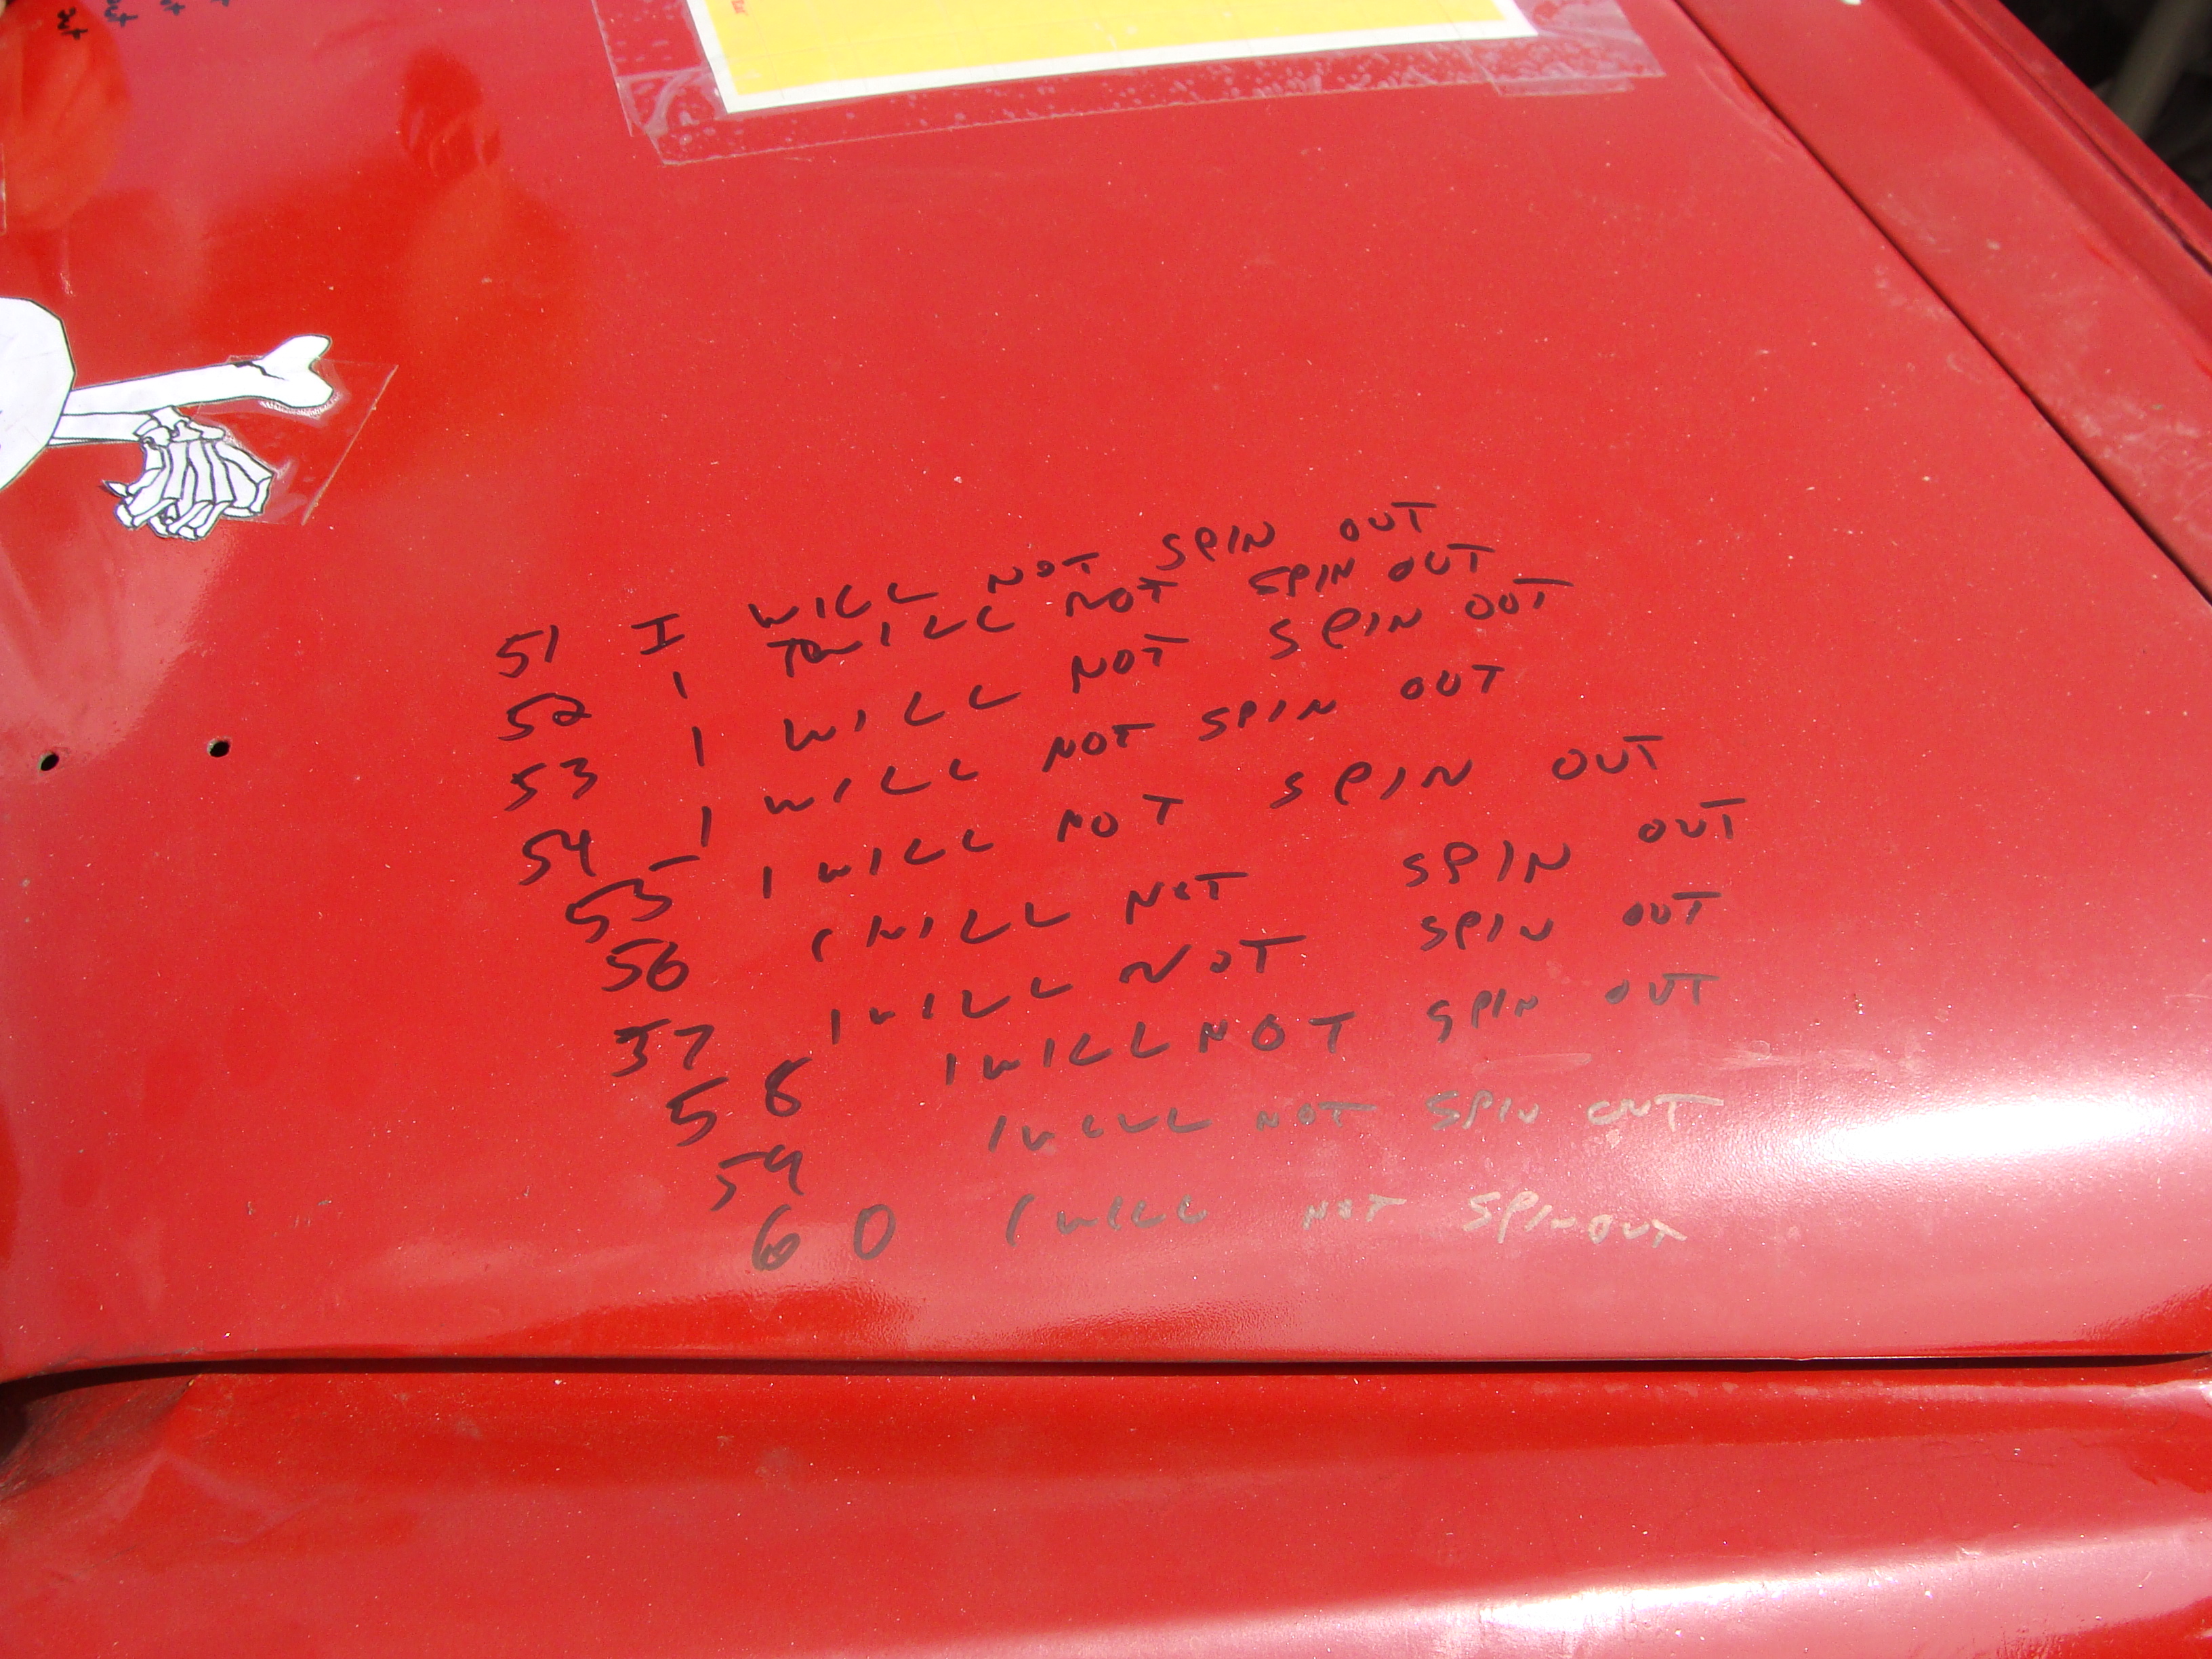 51 I WILL NOT SPIN OUT
52 I WILL NOT SPIN OUT
53 I WILL NOT SPIN OUT
54 I WILL NOT SPIN OUT
55 I WILL NOT SPIN OUT
56 I WILL NOT SPIN OUT
57 I WILL NOT SPIN OUT
58 I WILL NOT SPIN OUT
59 I WILL NOT SPIN OUT
60 I WILL NOT SPIN OUT